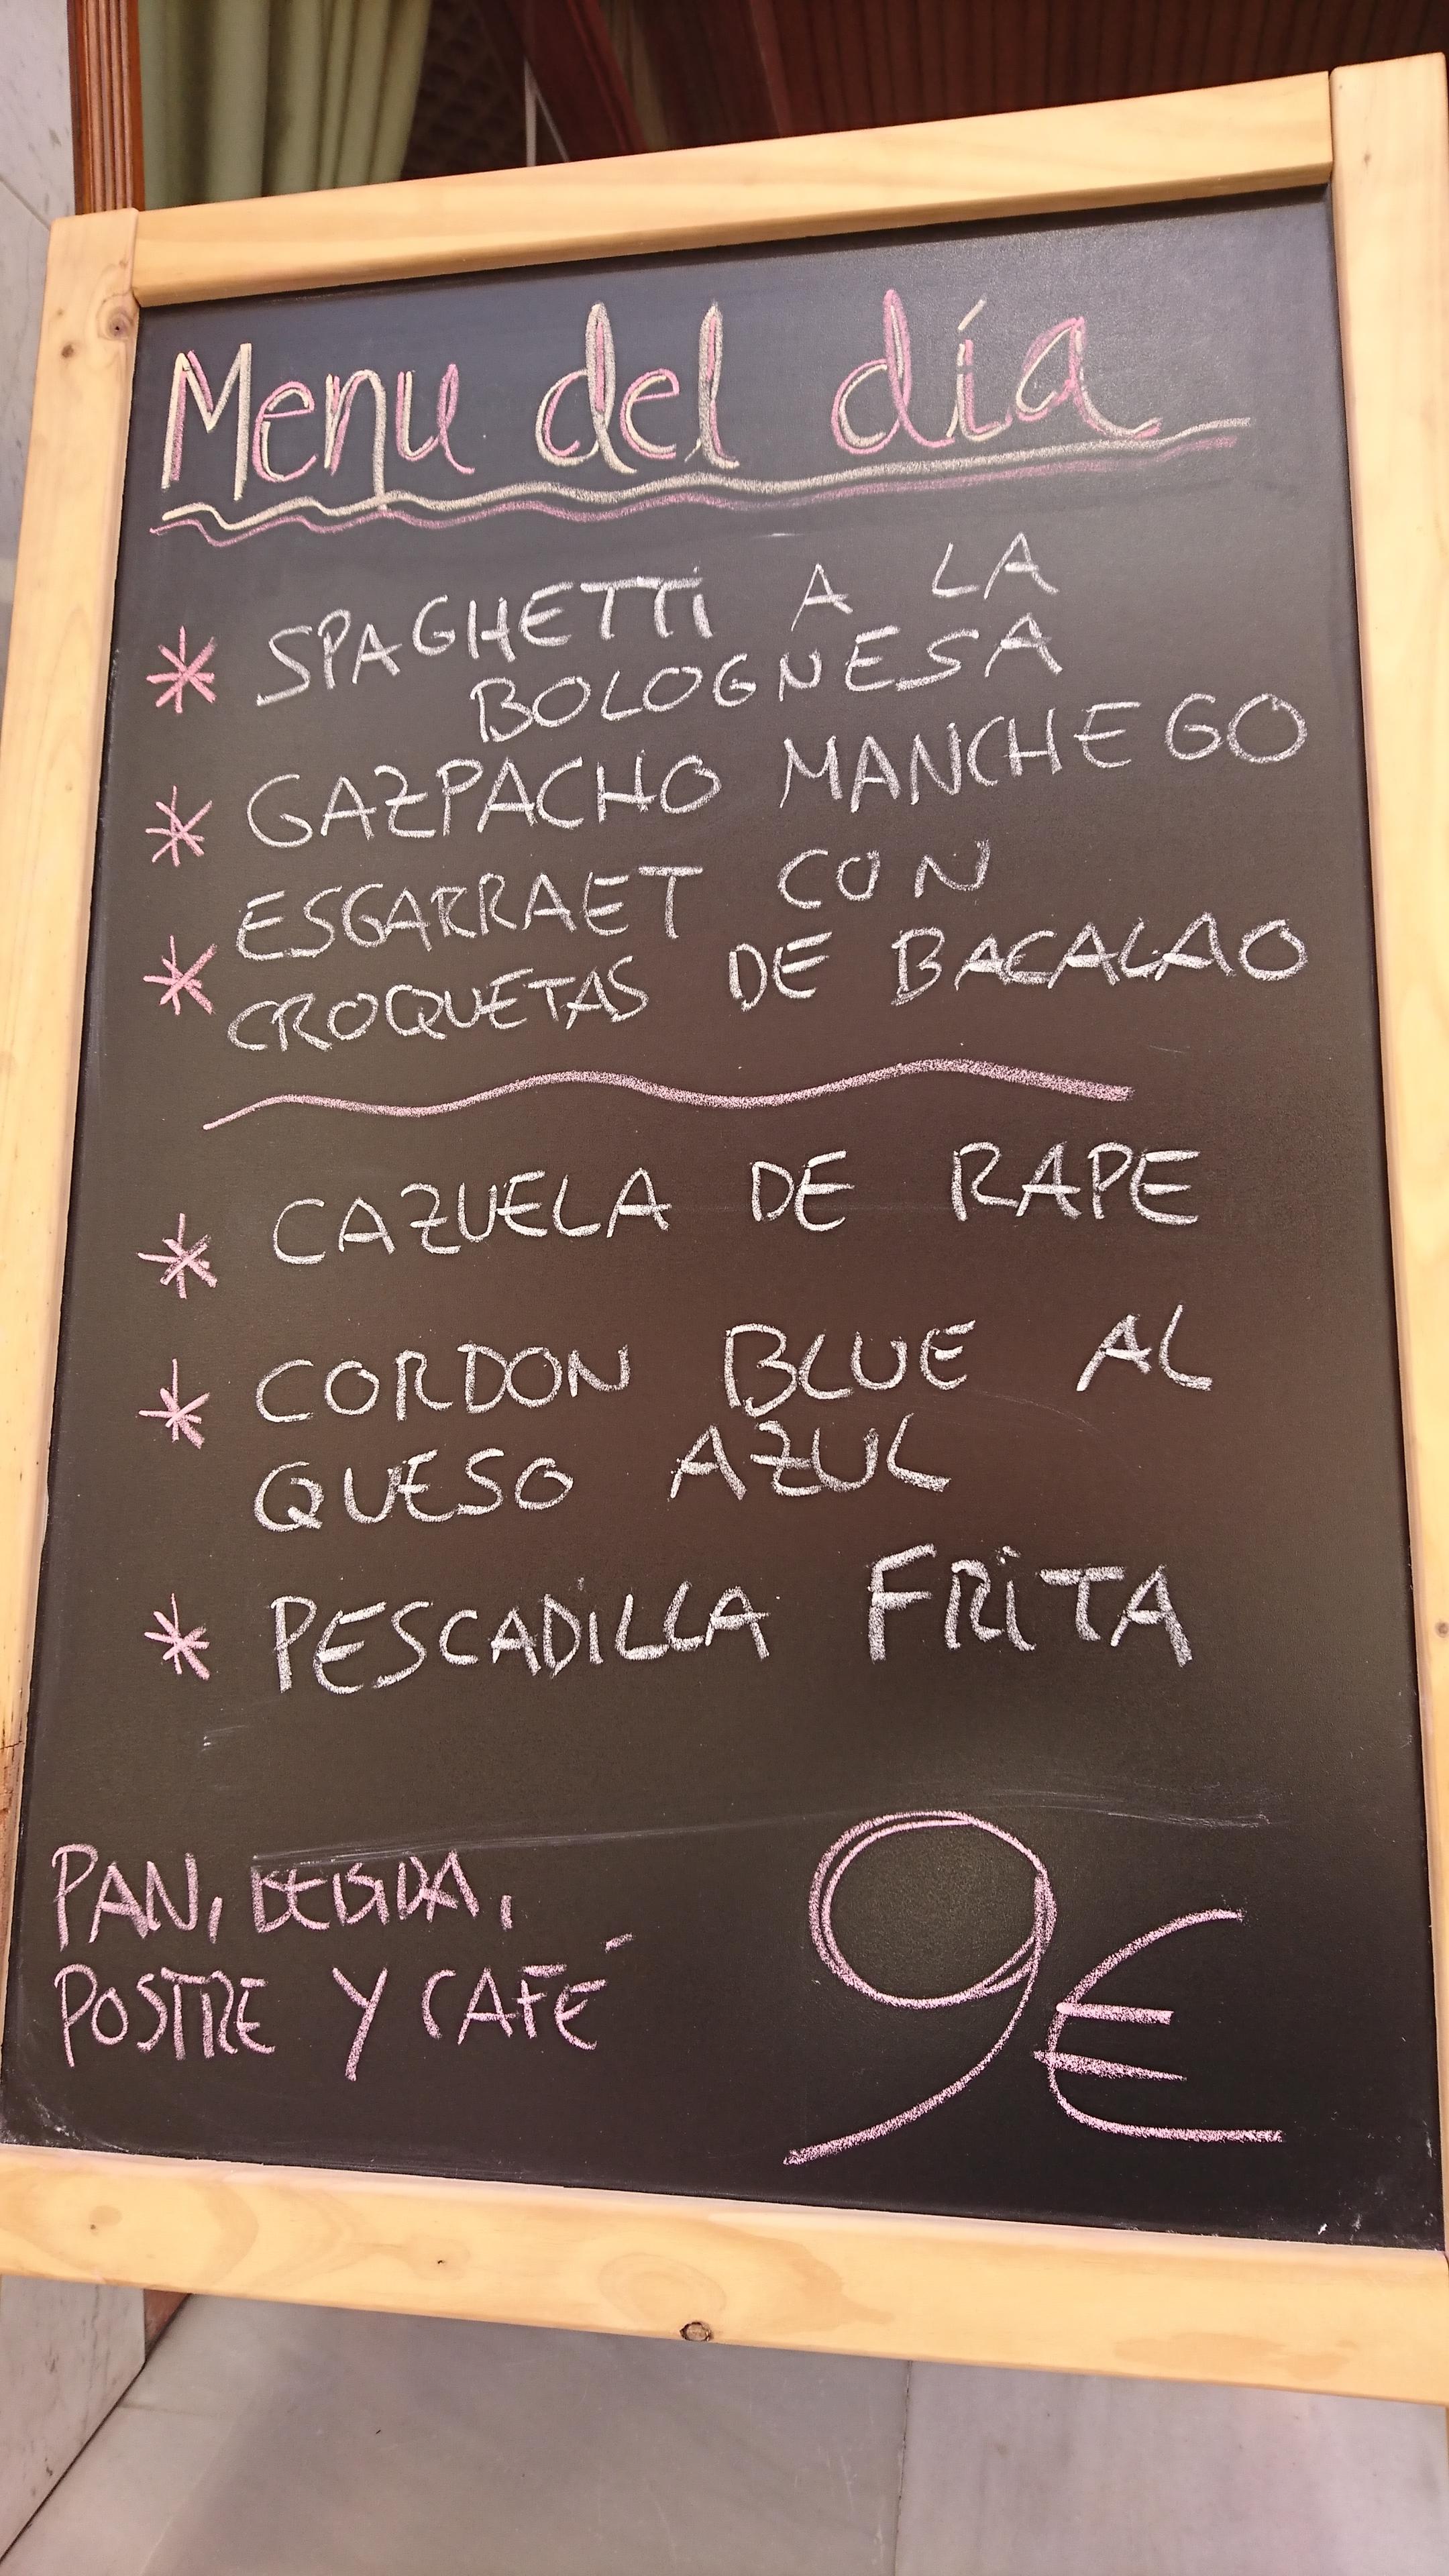 Menu del día
* SPAGHETTi A LA
BOLOGNESA
* GAZPACHO MANCHEGO
* ESGARRAET CON
CROQUETAS DE BACALAO
* CAZUELA DE RAPE
* CORDON BLUE AL
QUESO AZUL
* PESCADiLLA FRiTA
PAN, BEBIDA,
POSTRE Y CAFÉ
9€